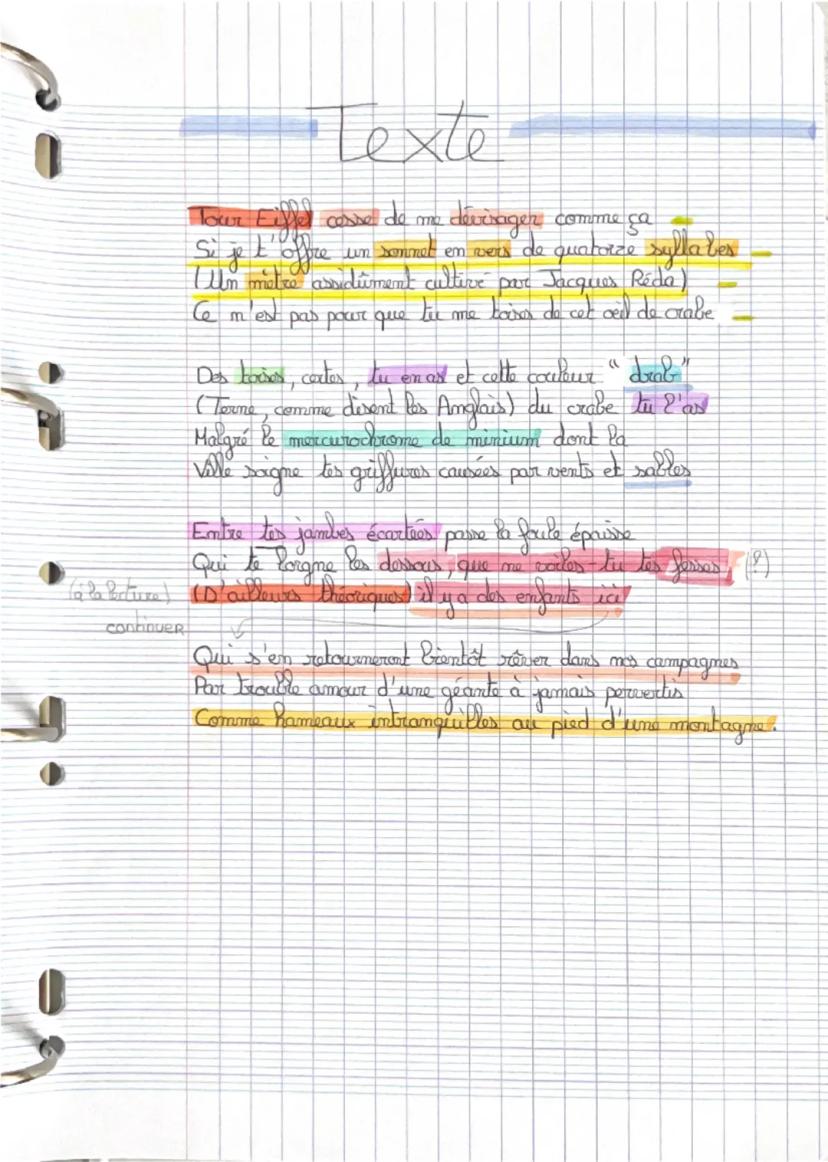 Texte
Tour Eiffel cesse de me dévisager comme ça
Si je t'offre un sonnet en vers de quatorze syllabes
(Un mètre assidûment cultivé par Jacques Réda)
Ce n'est pas pour que tu me toises de cet œil de crabe
Des toises, certes, tu en as et cette couleur "drab"
(Terne, comme disent les Anglais) du crabe tu l'as
Malgré le mercurochrome de minium dont la
Ville soigne tes griffures causées par vents et sables
Entre tes jambes écartées passe la foule épaisse
Qui te lorgne les dessous, que ne voiles-tu tes fesses, (?)
(D'ailleurs théoriques) il y a des enfants ici
(à la lecture)
continuer
Qui s'en retourneront bientôt rêver dans nos campagnes
Par trouble amour d'une géante à jamais pervertis
Comme hameaux intranquilles au pied d'une montagne.